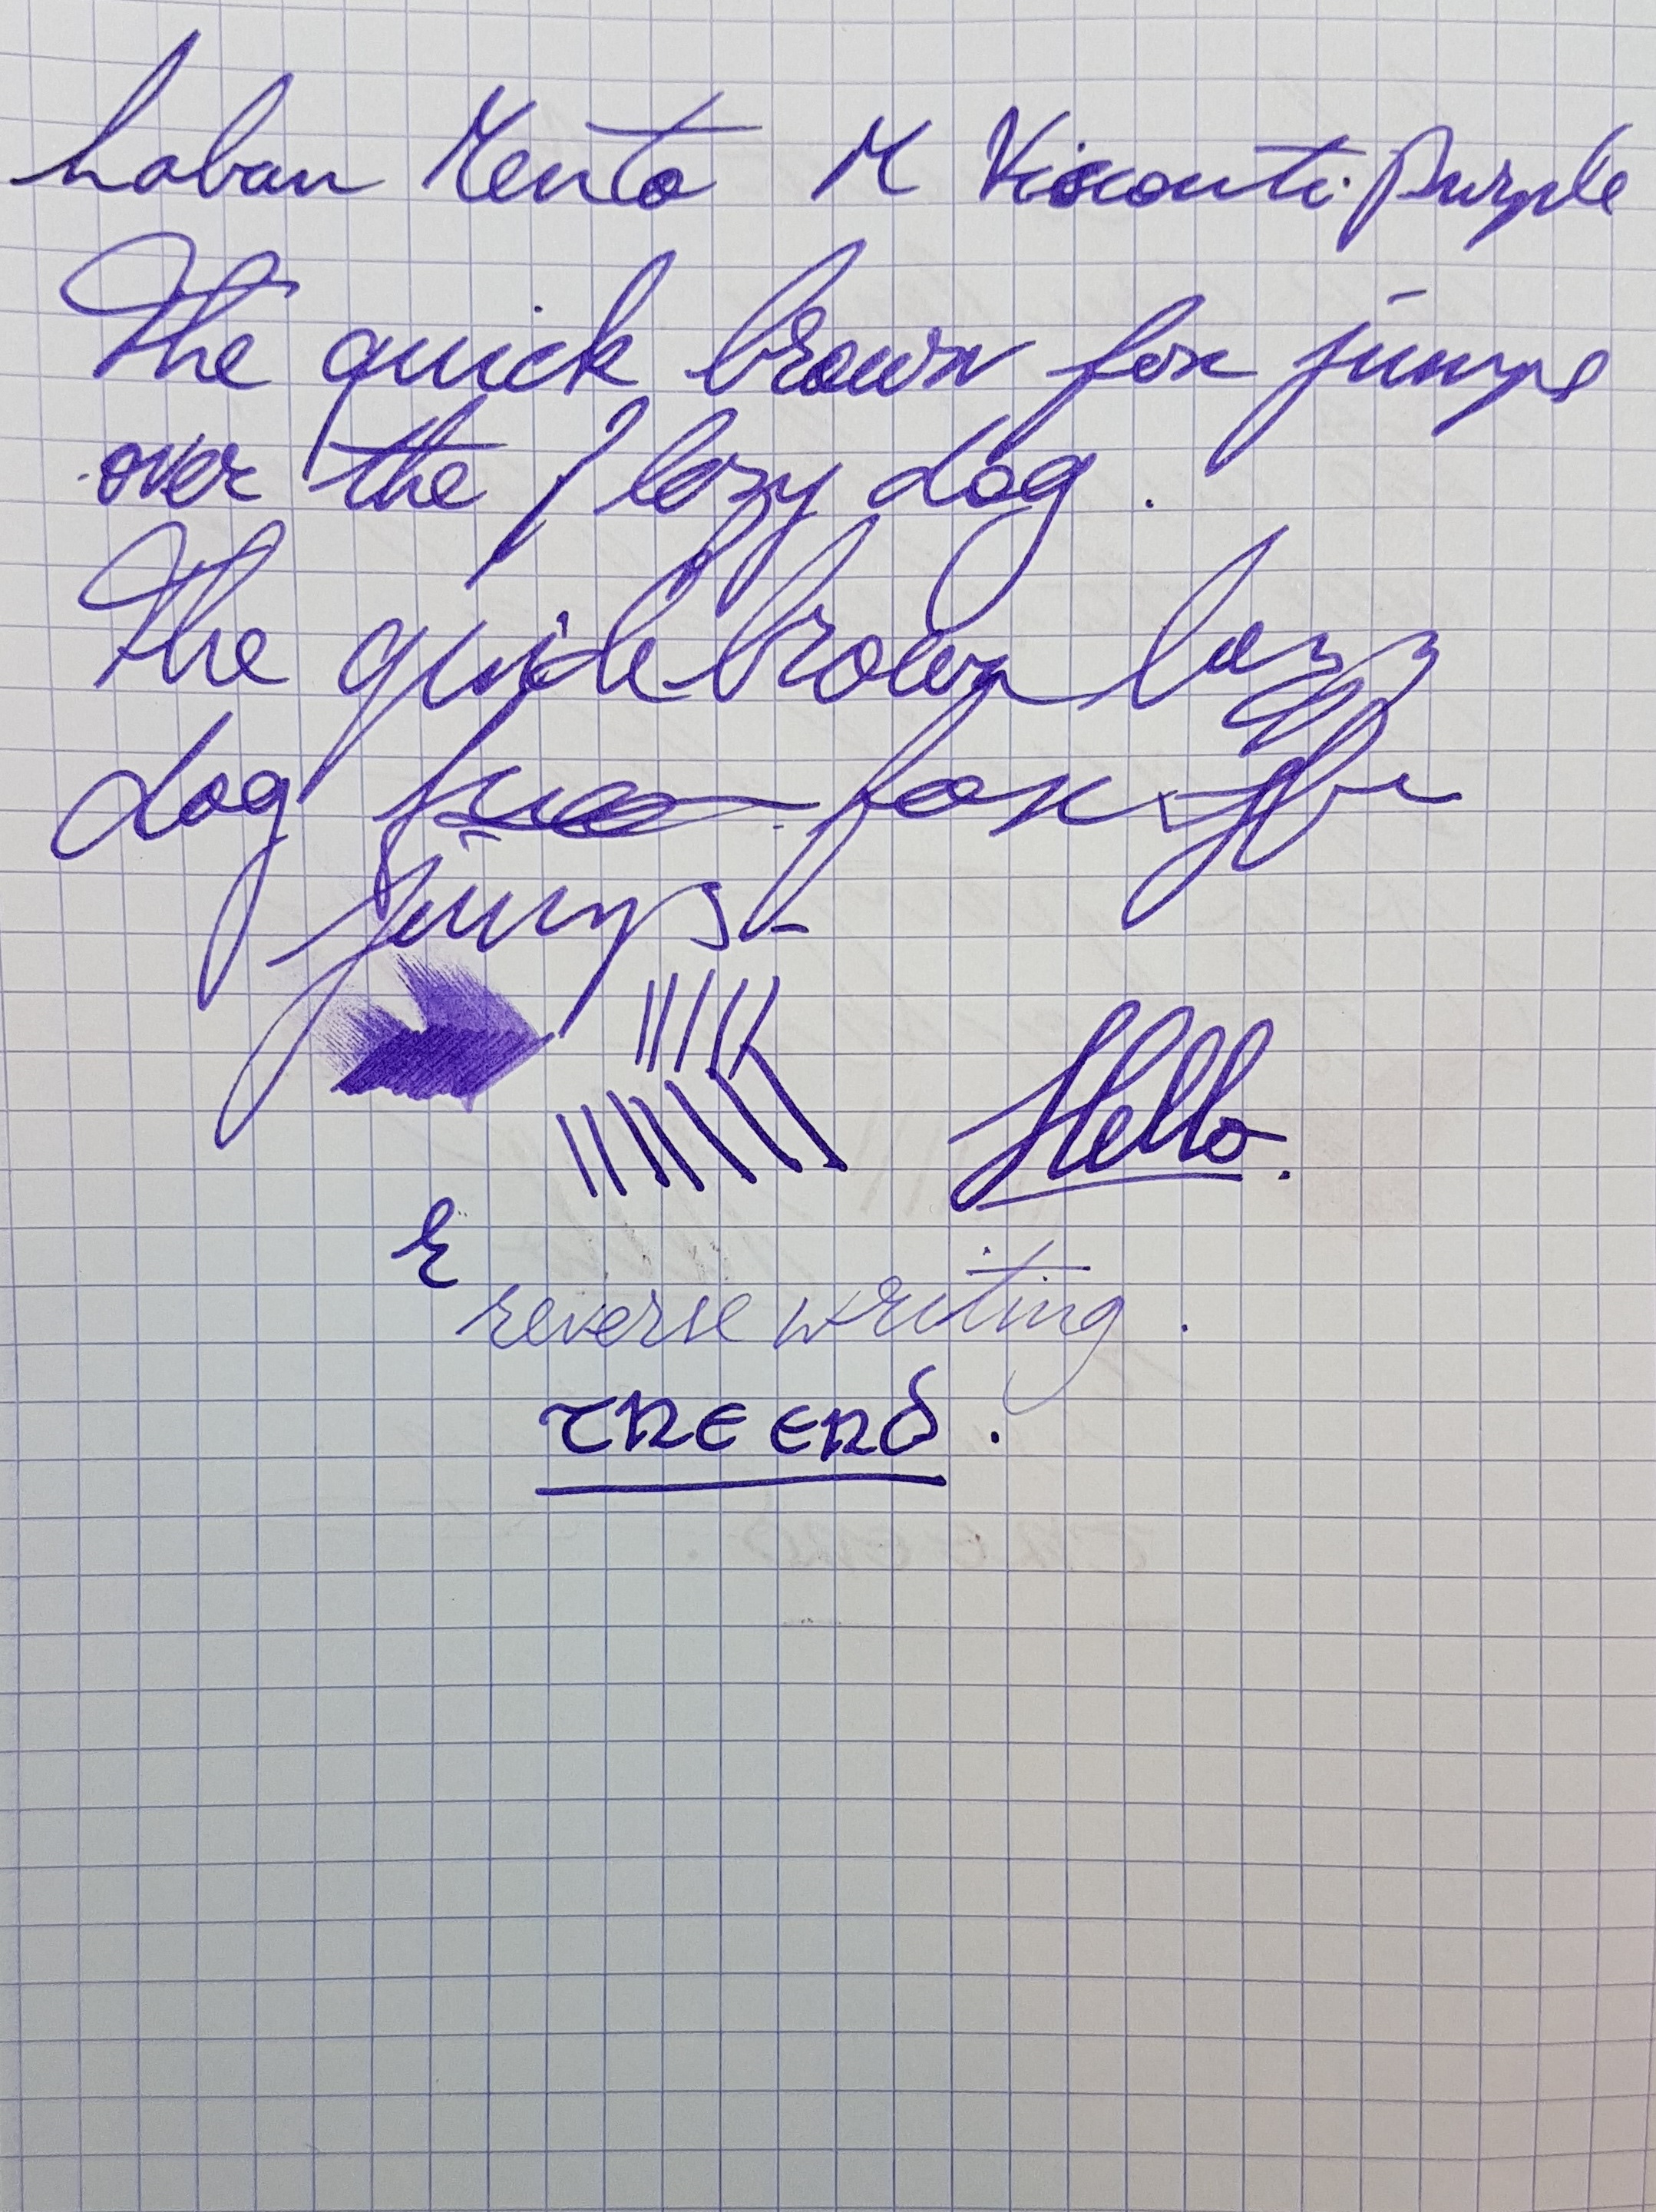 Laban Mento M Visconti Purple
The quick brown fox jumps
over the lazy dog.
The quick brown lazy
dog fox
jumps
Hello.
reverse writing.
THE END.